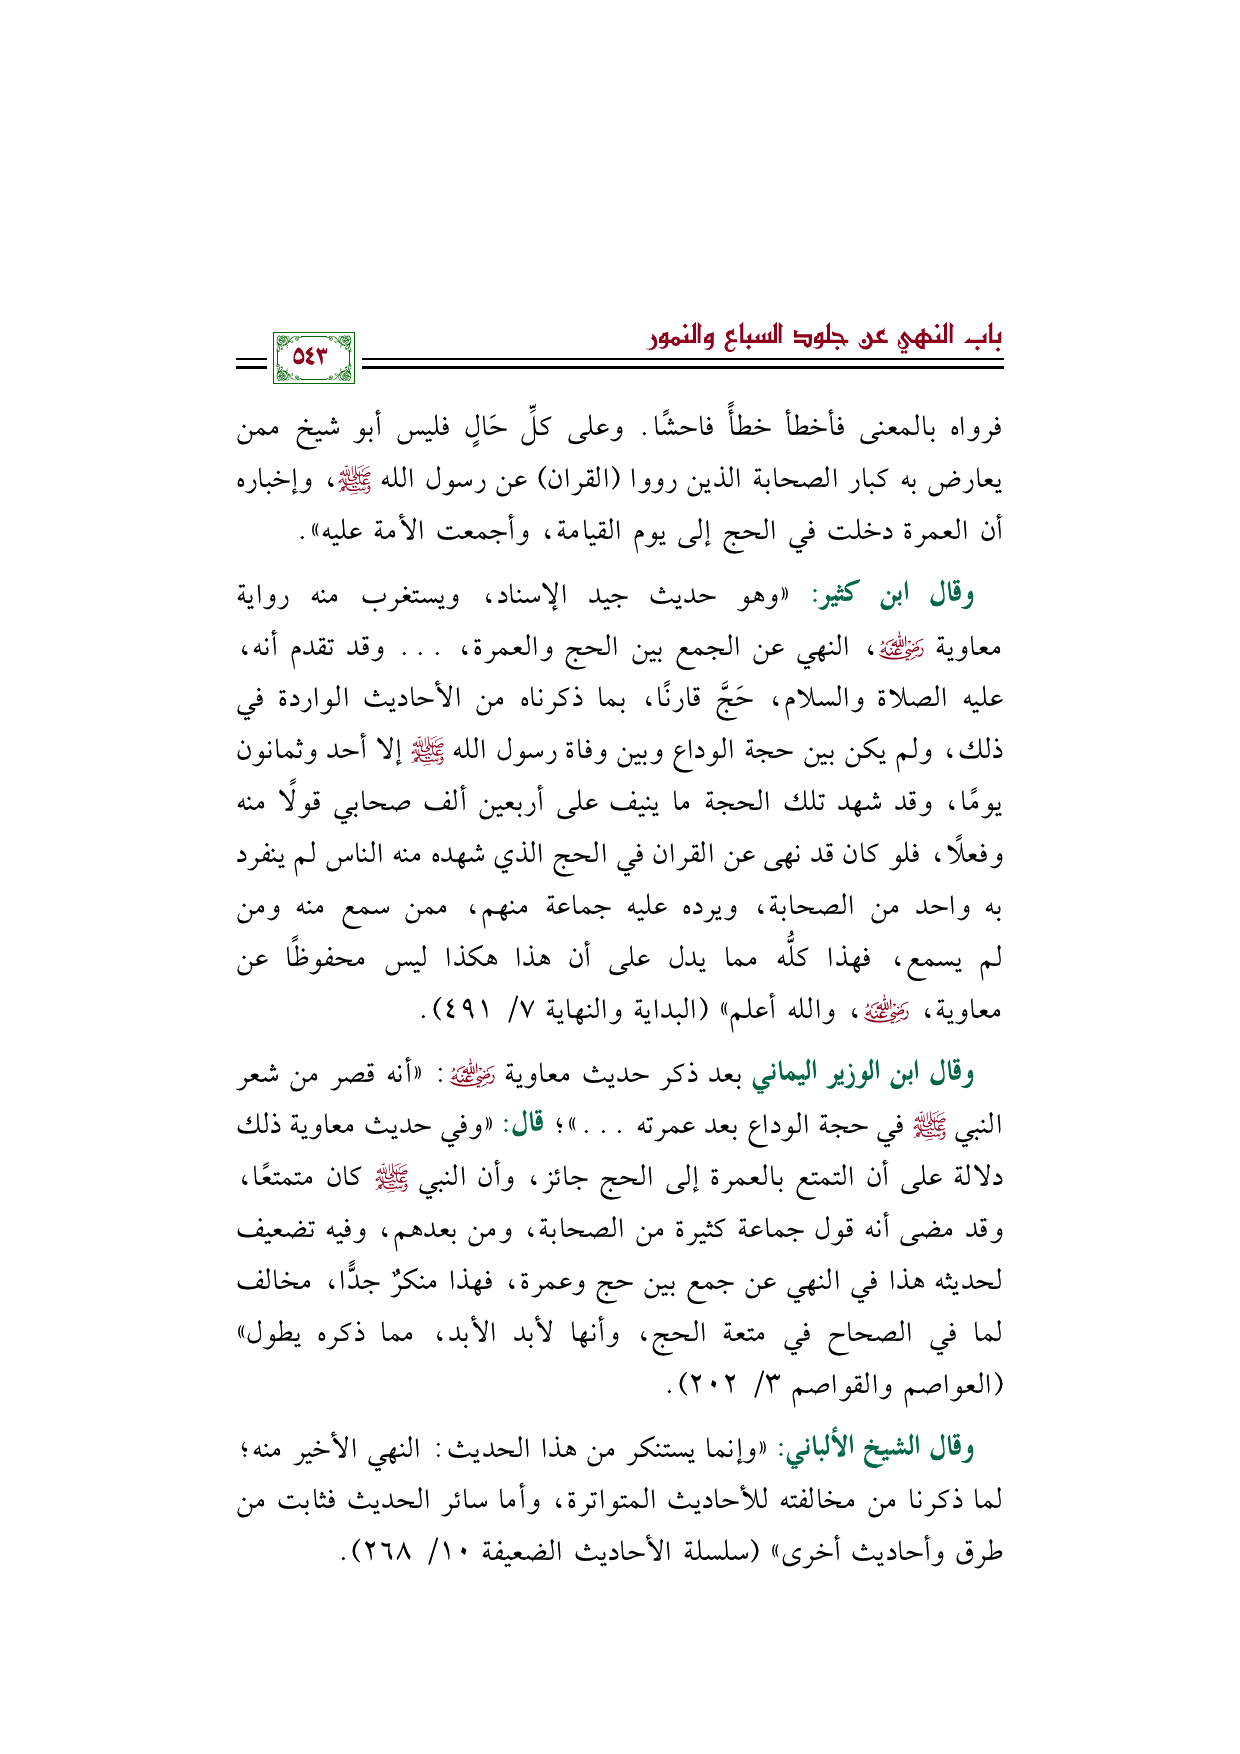 باب النهي عن جلود السباع والنمور
٥٤٣
فرواه بالمعنى فأخطأ خطأً فاحشًا. وعلى كلِّ حَالٍ فليس أبو شيخ ممن
يعارض به كبار الصحابة الذين رووا (القران) عن رسول الله ﷺ، وإخباره
أن العمرة دخلت في الحج إلى يوم القيامة، وأجمعت الأمة عليه».
وقال ابن كثير: «وهو حديث جيد الإسناد، ويستغرب منه رواية
معاوية رَضِيَ اللَّهُ عَنْهُ، النهي عن الجمع بين الحج والعمرة، ... وقد تقدم أنه،
عليه الصلاة والسلام، حَجَّ قارنًا، بما ذكرناه من الأحاديث الواردة في
ذلك، ولم يكن بين حجة الوداع وبين وفاة رسول الله ﷺ إلا أحد وثمانون
يومًا، وقد شهد تلك الحجة ما ينيف على أربعين ألف صحابي قولًا منه
وفعلًا، فلو كان قد نهى عن القران في الحج الذي شهده منه الناس لم ينفرد
به واحد من الصحابة، ويرده عليه جماعة منهم، ممن سمع منه ومن
لم يسمع، فهذا كلُّه مما يدل على أن هذا هكذا ليس محفوظًا عن
معاوية، رَضِيَ اللَّهُ عَنْهُ، والله أعلم» (البداية والنهاية ٧/ ٤٩١).
وقال ابن الوزير اليماني بعد ذكر حديث معاوية رَضِيَ اللَّهُ عَنْهُ: «أنه قصر من شعر
النبي ﷺ في حجة الوداع بعد عمرته ...»؛ قال: «وفي حديث معاوية ذلك
دلالة على أن التمتع بالعمرة إلى الحج جائز، وأن النبي ﷺ كان متمتعًا،
وقد مضى أنه قول جماعة كثيرة من الصحابة، ومن بعدهم، وفيه تضعيف
لحديثه هذا في النهي عن جمع بين حج وعمرة، فهذا منكرٌ جدًّا، مخالف
لما في الصحاح في متعة الحج، وأنها لأبد الأبد، مما ذكره يطول»
(العواصم والقواصم ٣/ ٢٠٢).
وقال الشيخ الألباني: «وإنما يستنكر من هذا الحديث: النهي الأخير منه؛
لما ذكرنا من مخالفته للأحاديث المتواترة، وأما سائر الحديث فثابت من
طرق وأحاديث أخرى» (سلسلة الأحاديث الضعيفة ١٠/ ٢٦٨).